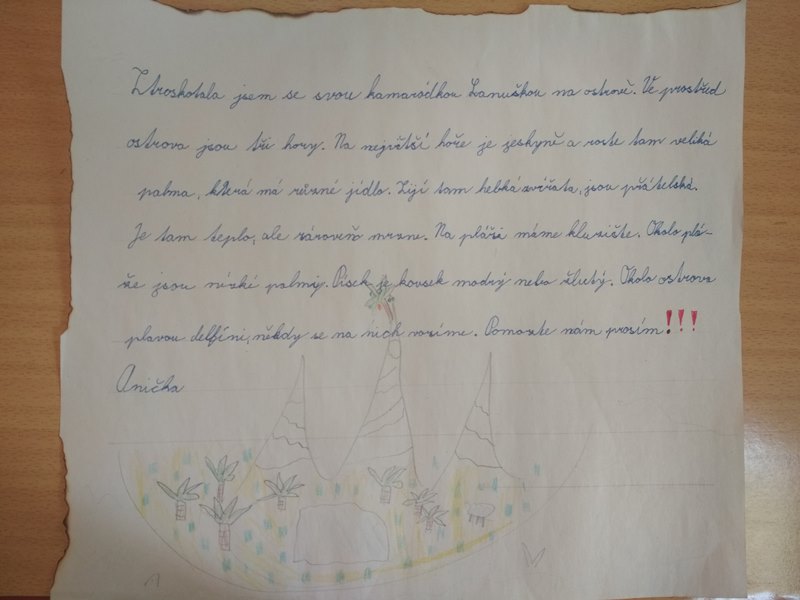 Ztroskotala jsem se svou kamarádkou Lanuškou na ostrově. Ve prostřed
ostrova jsou tři hory. Na největší hoře je jeskyně a roste tam veliká
palma, která má různé jídlo. Žijí tam hebká zvířata, jsou přátelská.
Je tam teplo, ale zároveň mrzne. Na pláži máme kluziště. Okolo plá-
že jsou nízké palmy. Písek je kousek modrý nebo žlutý. Okolo ostrova
plavou delfíni, někdy se na nich vozíme. Pomozte nám prosím!!!
Anička